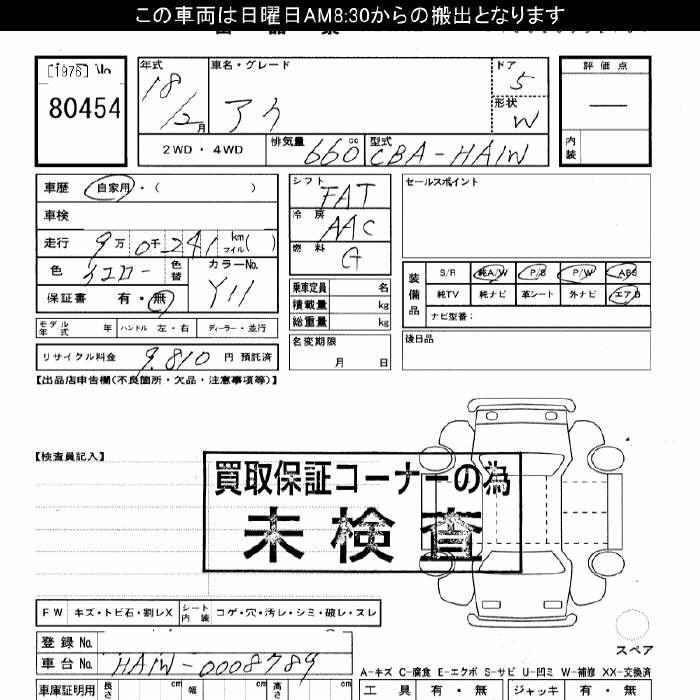 この車両は日曜日AM8:30からの搬出となります
[1976] No
80454
年式 18/12月
車名・グレード アイ
ドア 5
形状 W
評価点 —
内装
2WD・4WD
排気量 660cc
型式 CBA-HA1W
車歴 自家用・( )
車検
走行 9万0千241km マイル( )
色 イエロー 色替 カラーNo. Y11
保証書 有・無
モデル年式 年 ハンドル 左・右 ディーラー・並行
リサイクル料金 9,810円 預託済
シフト FAT
冷房 AAC
燃料 G
乗車定員 名
積載量 kg
総重量 kg
名変期限 月 日
セールスポイント
装備品 S/R 純A/W P/S P/W ABS
純TV 純ナビ 革シート 外ナビ エアB
ナビ型番:
後日品
【出品店申告欄(不良箇所・欠品・注意事項等)】
【検査員記入】
買取保証コーナーの為
未検査
FW キズ・トビ石・割レX シート内装 コゲ・穴・汚レ・シミ・破レ・スレ
登録No.
車台No. HA1W-0008789
スペア
A-キズ C-腐食 E-エクボ S-サビ U-凹ミ W-補修 XX-交換済
車庫証明用 長さ cm 幅 cm 高さ cm
工具 有・無 ジャッキ 有・無